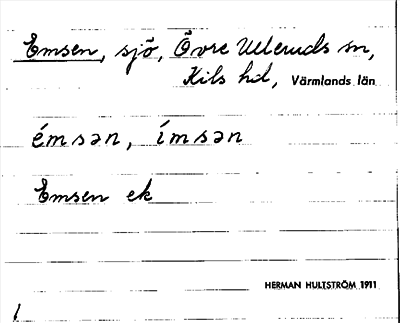 Emsen, sjö, Övre Ulleruds sn,
Kils hd, Värmlands län
émsən, ímsən
Emsen ek
HERMAN HULTSTRÖM 1911